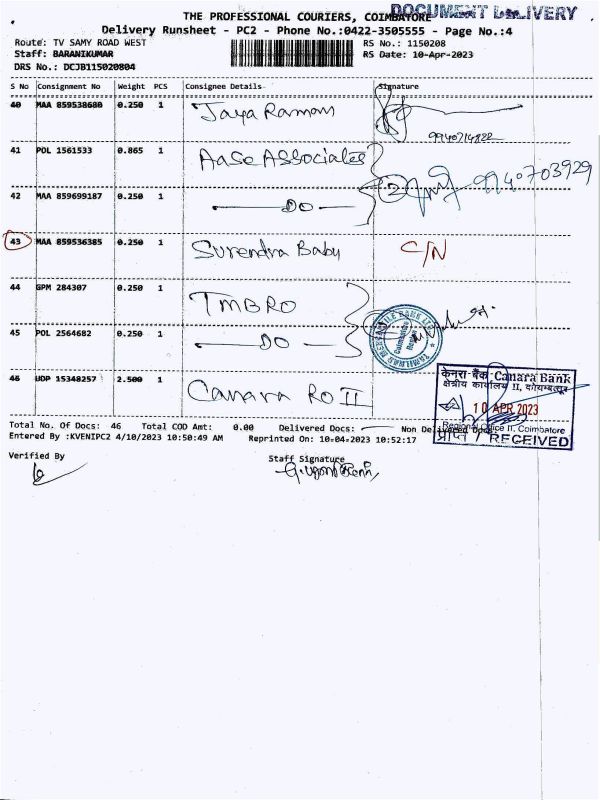 DOCUMENT DELIVERY
THE PROFESSIONAL COURIERS, COIMBATORE
Delivery Runsheet - PC2 - Phone No.:0422-3505555 - Page No.:4
Route: TV SAMY ROAD WEST RS No.: 1150208
Staff: BARANIKUMAR RS Date: 10-Apr-2023
DRS No.: DCJB115020804
S No Consignment No Weight PCS Consignee Details Signature
40 MAA 859538680 0.250 1 Jaya Ramam
41 POL 1561533 0.865 1 Aase Associates
42 MAA 859699187 0.250 1 DO 2 9940703929
43 MAA 859536385 0.250 1 Surendra Babu C/N
44 GPM 284307 0.250 1 TMBRO
45 POL 2564682 0.250 1 DO
TAMILNAD MERCANTILE BANK LTD
Coimbatore Region
46 UDP 15348257 2.500 1 Canara RO II
केनरा बैंक Canara Bank
क्षेत्रीय कार्यालय II, कोयम्बत्तूर
10 APR 2023
Regional Office II, Coimbatore
प्राप्त / RECEIVED
Total No. Of Docs: 46 Total COD Amt: 0.00 Delivered Docs: Non Delivered Docs
Entered By :KVENIPC2 4/10/2023 10:50:49 AM Reprinted On: 10-04-2023 10:52:17
Verified By Staff Signature